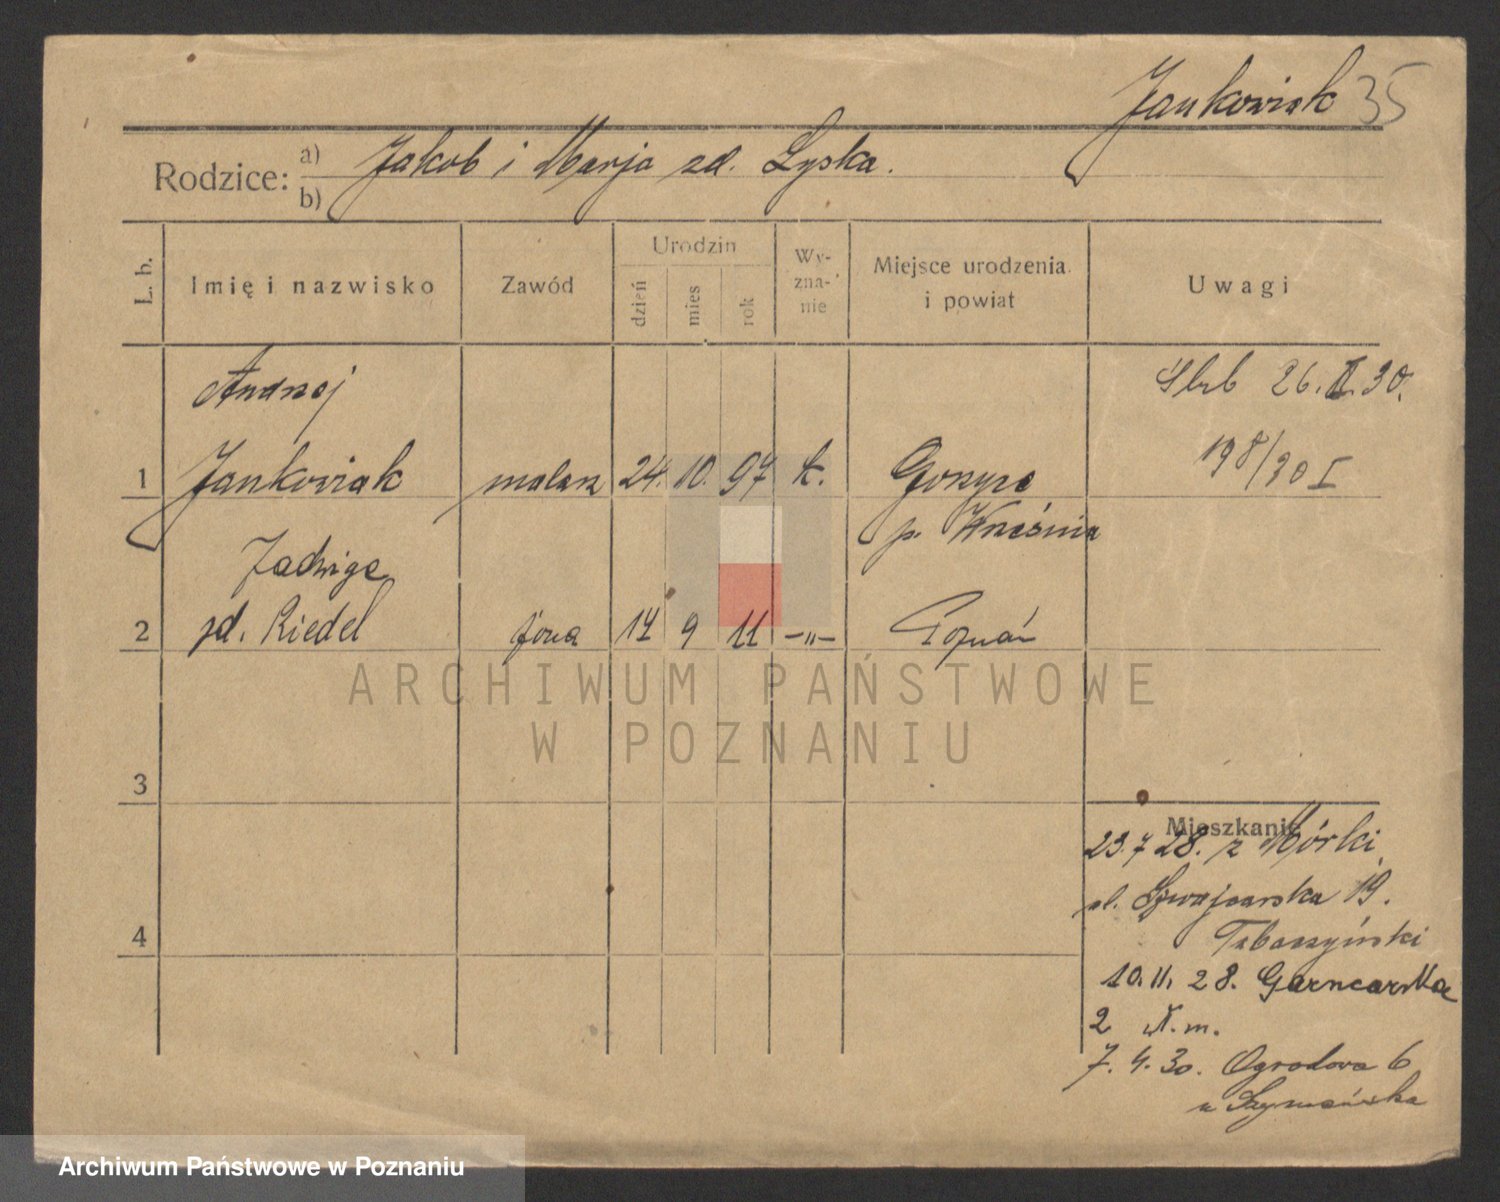 Jankowiak 35
Rodzice: a) b) Jakob i Marja zd. Łyska.
L. b.
Imię i nazwisko
Zawód
Urodzin
dzień
mies
rok
Wy-
zna-
nie
Miejsce urodzenia
i powiat
Uwagi
Andrzej
1 Jankowiak malarz 24. 10. 97 k. Gorzyce
p. Września
Ślub 26. II. 30.
198/30 I
Jadwiga
2 zd. Riedel żona 14 9 11 –„– Poznań
3
4
Mieszkanie
23.7 28. z Mórki
ul. Szwajcarska 19.
10.11. 28. Garncarska
2 W. m.
7. 4. 30. Ogrodowa 6
u Szymańska
ARCHIWUM PAŃSTWOWE
W POZNANIU
Archiwum Państwowe w Poznaniu